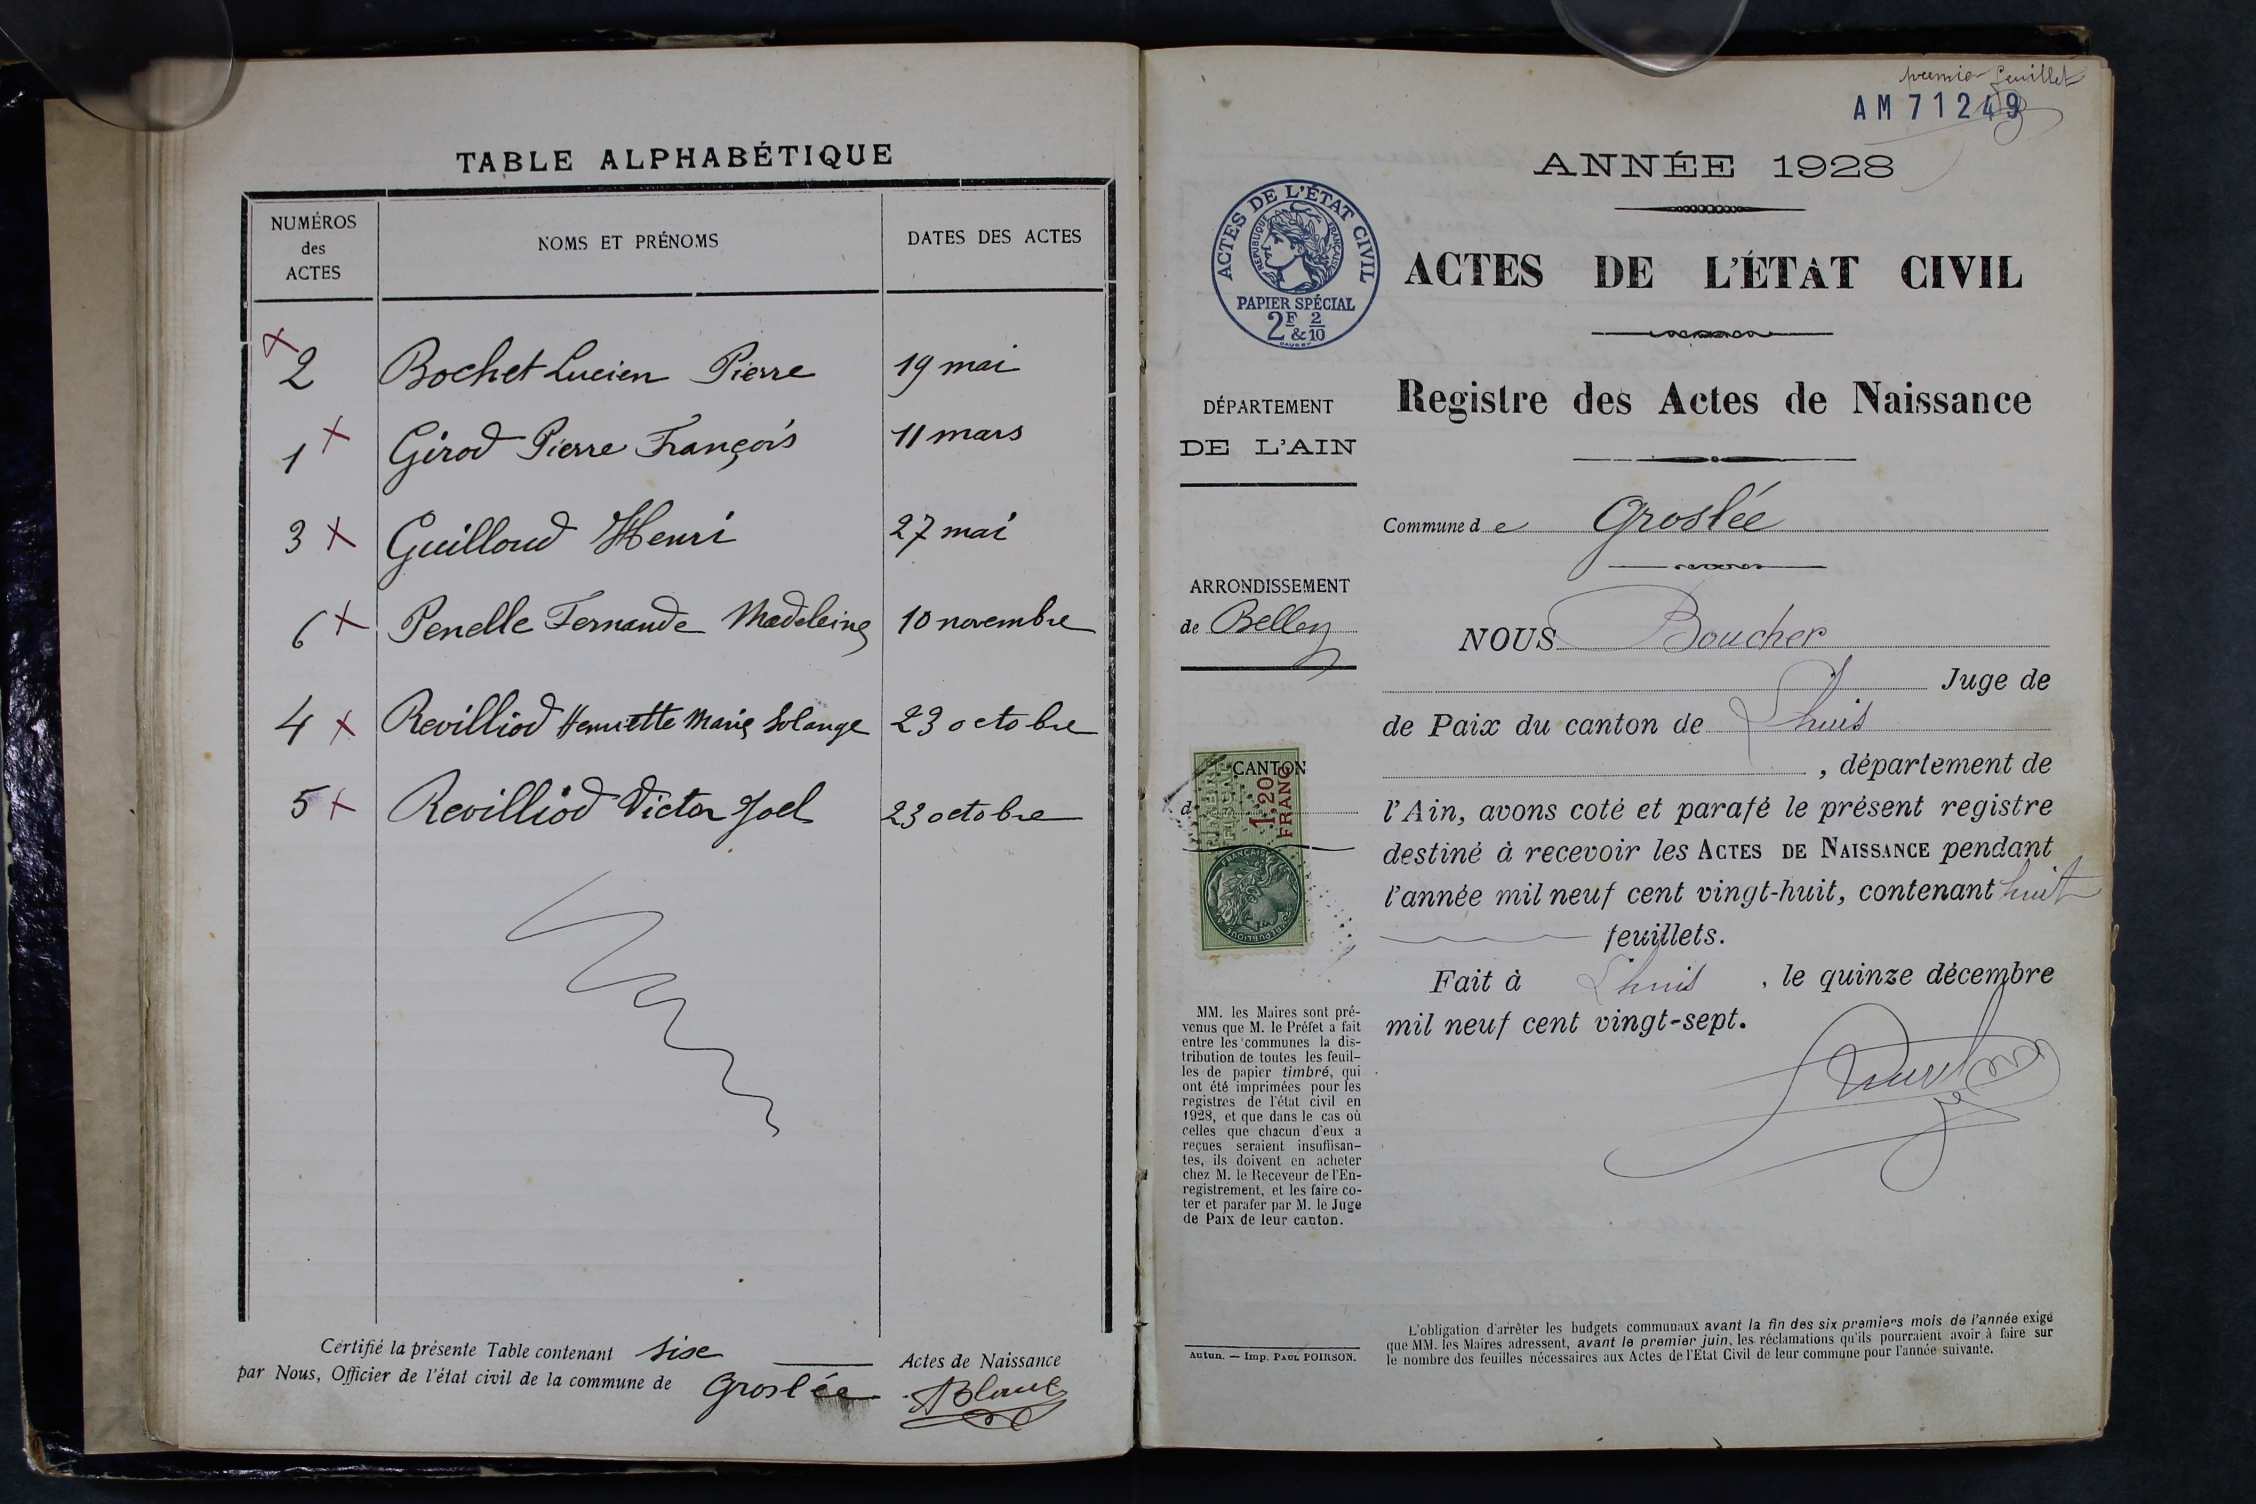 TABLE ALPHABÉTIQUE
NUMÉROS
des
ACTES
NOMS ET PRÉNOMS
DATES DES ACTES
2 Bochet Lucien Pierre 19 mai
1 Girod Pierre François 11 mars
3 Guilloud Henri 27 mai
6 Penelle Fernande Madeleine 10 novembre
4 Revilliod Henriette Marie Solange 23 octobre
5 Revilliod Victor Joel 23 octobre
Certifié la présente Table contenant sixe Actes de Naissance
par Nous, Officier de l'état civil de la commune de Groslée
ABlanc
premier feuillet
AM 71249
ANNÉE 1928
ACTES DE L'ÉTAT CIVIL
RÉPUBLIQUE FRANÇAISE
PAPIER SPÉCIAL
2F & 2/10
ACTES DE L'ÉTAT CIVIL
DÉPARTEMENT
DE L'AIN
Registre des Actes de Naissance
Commune de Groslée
ARRONDISSEMENT
de Belley
NOUS Boucher
Juge de
de Paix du canton de Lhuis
, département de
CANTON
d
1.20
FRANC
l'Ain, avons coté et parafé le présent registre
destiné à recevoir les ACTES DE NAISSANCE pendant
l'année mil neuf cent vingt-huit, contenant huit
feuillets.
Fait à Lhuis, le quinze décembre
mil neuf cent vingt-sept.
MM. les Maires sont pré-
venus que M. le Préfet a fait
entre les communes la dis-
tribution de toutes les feuil-
les de papier timbré, qui
ont été imprimées pour les
registres de l'état civil en
1928, et que dans le cas où
celles que chacun d'eux a
reçues seraient insuffisan-
tes, ils doivent en acheter
chez M. le Receveur de l'En-
registrement, et les faire co-
ter et parafer par M. le Juge
de Paix de leur canton.
Autun. — Imp. PAUL POIRSON.
L'obligation d'arrêter les budgets communaux avant la fin des six premiers mois de l'année exige
que MM. les Maires adressent, avant le premier juin, les réclamations qu'ils pourraient avoir à faire sur
le nombre des feuilles nécessaires aux Actes de l'Etat Civil de leur commune pour l'année suivante.